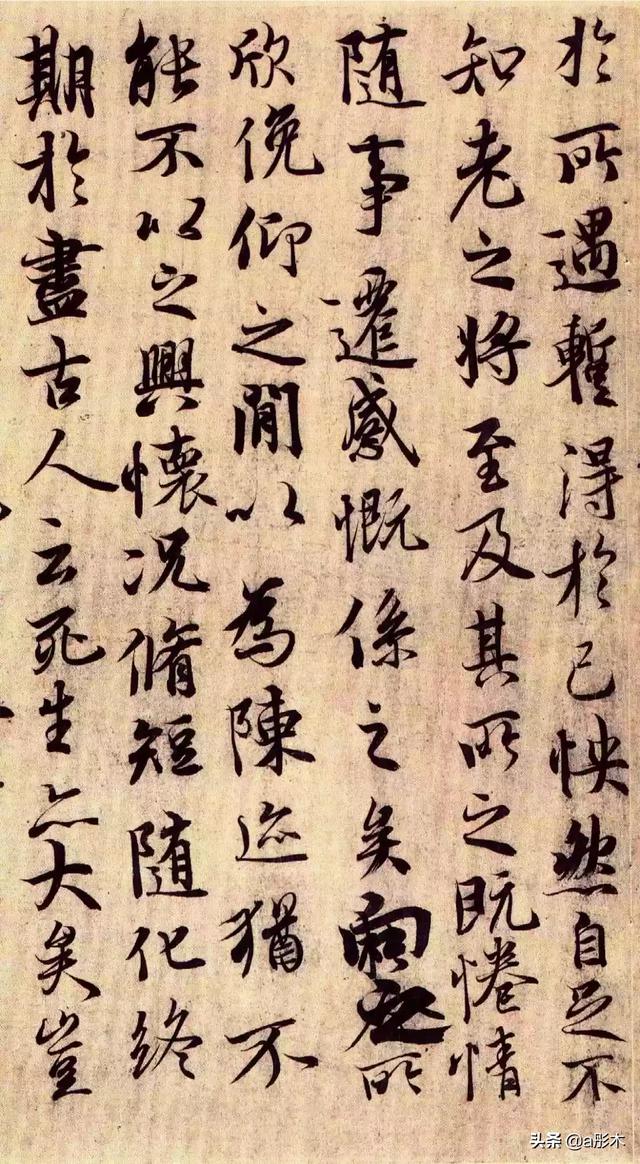 於所遇暫得於己怏然自足不
知老之將至及其所之既惓情
隨事遷感慨係之矣向之所
欣俛仰之閒以為陳迹猶不
能不以之興懷況脩短隨化終
期於盡古人云死生亦大矣豈
头条 @a彤木